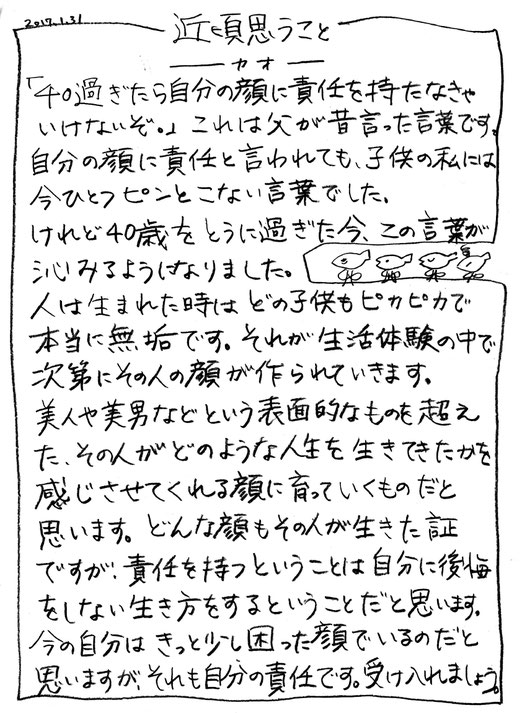 2017.1.31
近頃思うこと
ーカオー
「40過ぎたら自分の顔に責任を持たなきゃ
いけないぞ。」これは父が昔言った言葉です。
自分の顔に責任と言われても、子供の私には
今ひとつピンとこない言葉でした。
けれど40歳をとうに過ぎた今、この言葉が
沁みるようになりました。
人は生まれた時はどの子供もピカピカで
本当に無垢です。それが生活体験の中で
次第にその人の顔が作られていきます。
美人や美男などという表面的なものを超え
た、その人がどのような人生を生きてきたかを
感じさせてくれる顔に育っていくものだと
思います。どんな顔もその人が生きた証
ですが、責任を持つということは自分に後悔
をしない生き方をするということだと思います。
今の自分はきっと少し困った顔でいるのだと
思いますが、それも自分の責任です。受け入れましょう。